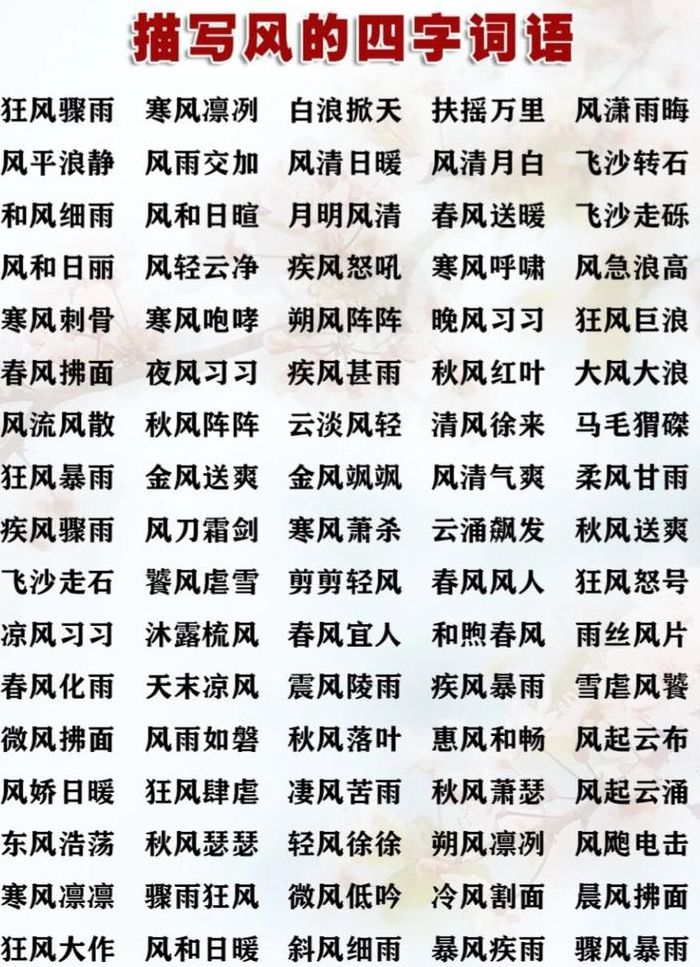 描写风的四字词语
狂风骤雨 寒风凛冽 白浪掀天 扶摇万里 风潇雨晦
风平浪静 风雨交加 风清日暖 风清月白 飞沙转石
和风细雨 风和日暄 月明风清 春风送暖 飞沙走砾
风和日丽 风轻云净 疾风怒吼 寒风呼啸 风急浪高
寒风刺骨 寒风咆哮 朔风阵阵 晚风习习 狂风巨浪
春风拂面 夜风习习 疾风甚雨 秋风红叶 大风大浪
风流风散 秋风阵阵 云淡风轻 清风徐来 马毛猬磔
狂风暴雨 金风送爽 金风飒飒 风清气爽 柔风甘雨
疾风骤雨 风刀霜剑 寒风萧杀 云涌飙发 秋风送爽
飞沙走石 饕风虐雪 剪剪轻风 春风风人 狂风怒号
凉风习习 沐露梳风 春风宜人 和煦春风 雨丝风片
春风化雨 天末凉风 震风陵雨 疾风暴雨 雪虐风饕
微风拂面 风雨如磐 秋风落叶 惠风和畅 风起云布
风娇日暖 狂风肆虐 凄风苦雨 秋风萧瑟 风起云涌
东风浩荡 秋风瑟瑟 轻风徐徐 朔风凛冽 风飑电击
寒风凛凛 骤雨狂风 微风低吟 冷风割面 晨风拂面
狂风大作 风和日暖 斜风细雨 暴风疾雨 骤风暴雨